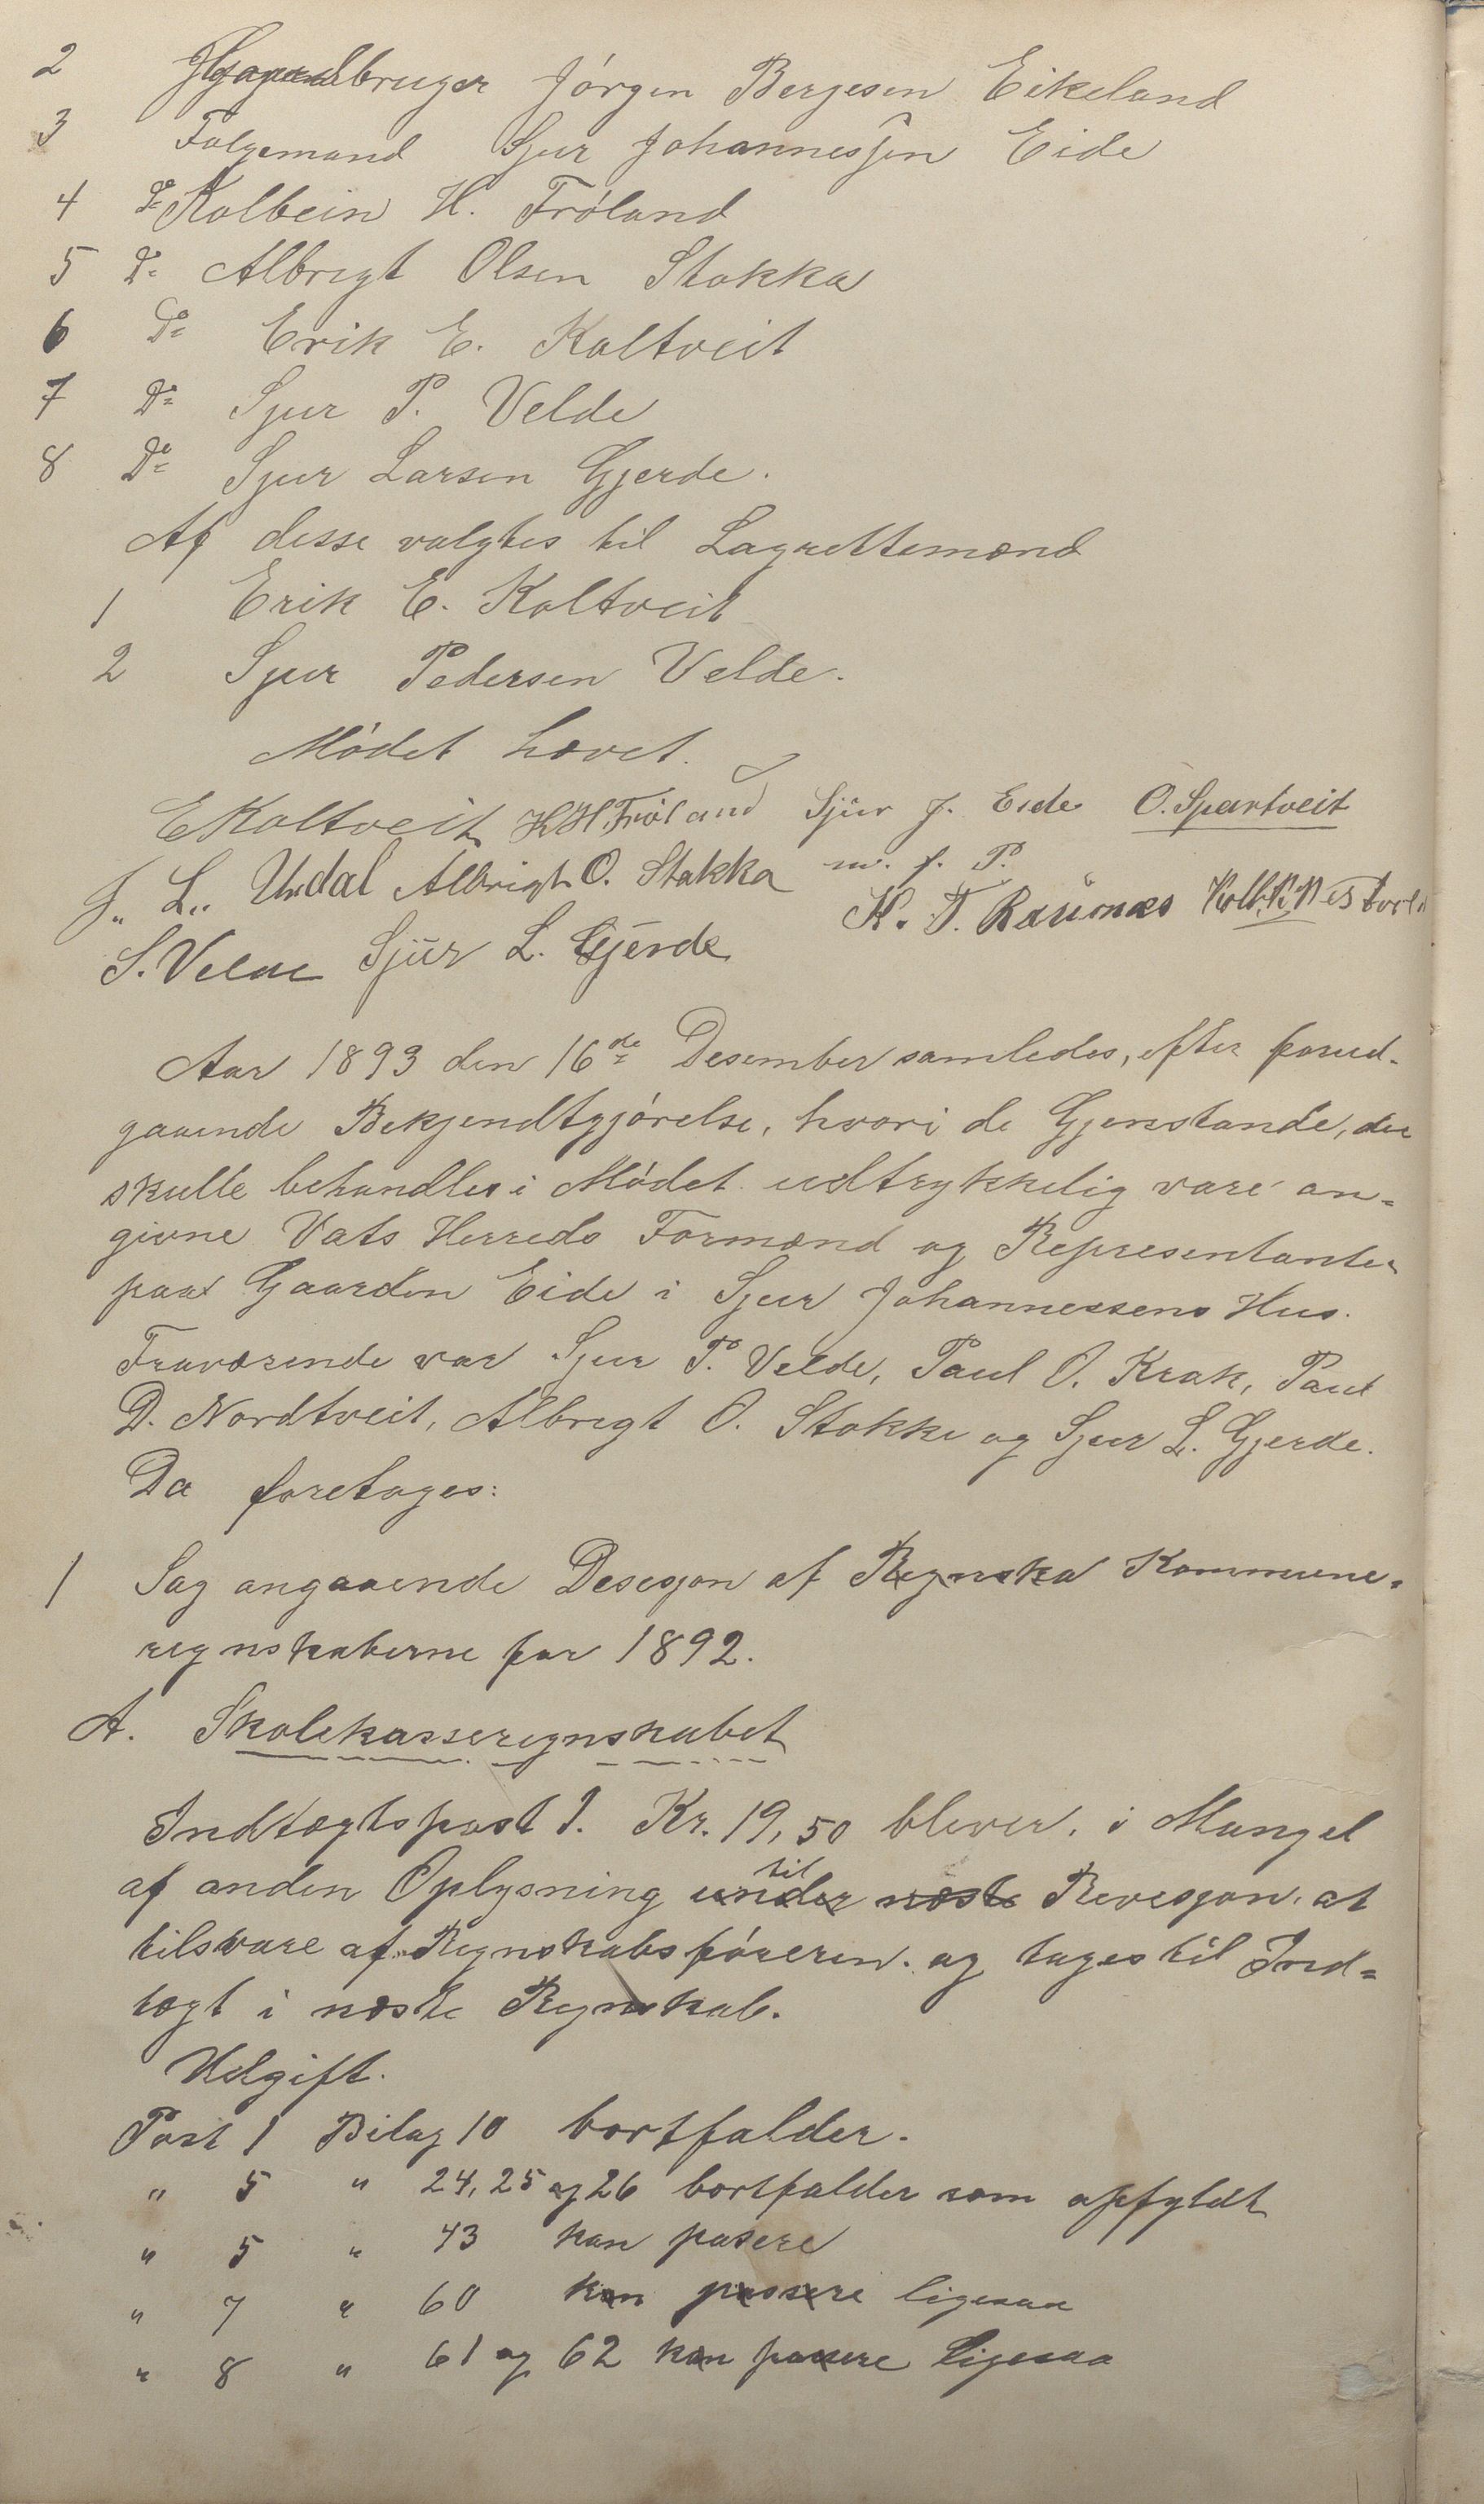 2 Gaardbruger Jørgen Bergesen Eikeland
3 Følgemand Sjur Johannessen Eide
4 Do Kolbein H. Frøland
5 Do Albregt Olsen Stakka
6 Do Erik E. Kaltveit
7 Do Sjur P. Velde
8 Do Sjur Larsen Gjerde.
Af disse valgtes til Lagrettemænd
1 Erik E. Kaltveit
2 Sjur Pedersen Velde.
Mødet hævet.
E Kaltveit K H. Frøland Sjur J. Eide O. Spartveit
J. L. Undal Albrigt O. Stakka m. f. P.
K. T. Raunæs
S. Velde Sjur L. Gjerde
Aar 1893 den 16de Desember samledes, efter forud-
gaaende Bekjendtgjørelse, hvori de Gjenstande, der
skulle behandles i Mødet udtrykkelig vare an-
givne Vats Herreds Formænd og Representanter
paa Gaarden Eide i Sjur Johannessens Hus.
Fraværende var Sjur P. Velde, Paul O. Krak, Paul
D. Nordtveit, Albregt O. Stakke og Sjur L. Gjerde.
Da foretoges:
1 Sag angaaende Desesjon af Regnska Kommune-
regnskaberne for 1892.
A. Skolekasseregnskabet
Indtægtspost 1. Kr. 19,50 bliver, i Mangel
af anden Oplysning under næste til Revesjon, at
tilsvare af Regnskabsføreren og tages til Ind-
tægt i næste Regnskab.
Udgift.
Post 1 Bilag 10 bortfalder.
" 5 " 24, 25 og 26 bortfalder som opfyldt
" 5 " 43 kan pasere
" 7 " 60 kan passere ligesaa
" 8 " 61 og 62 kan pasere ligesaa